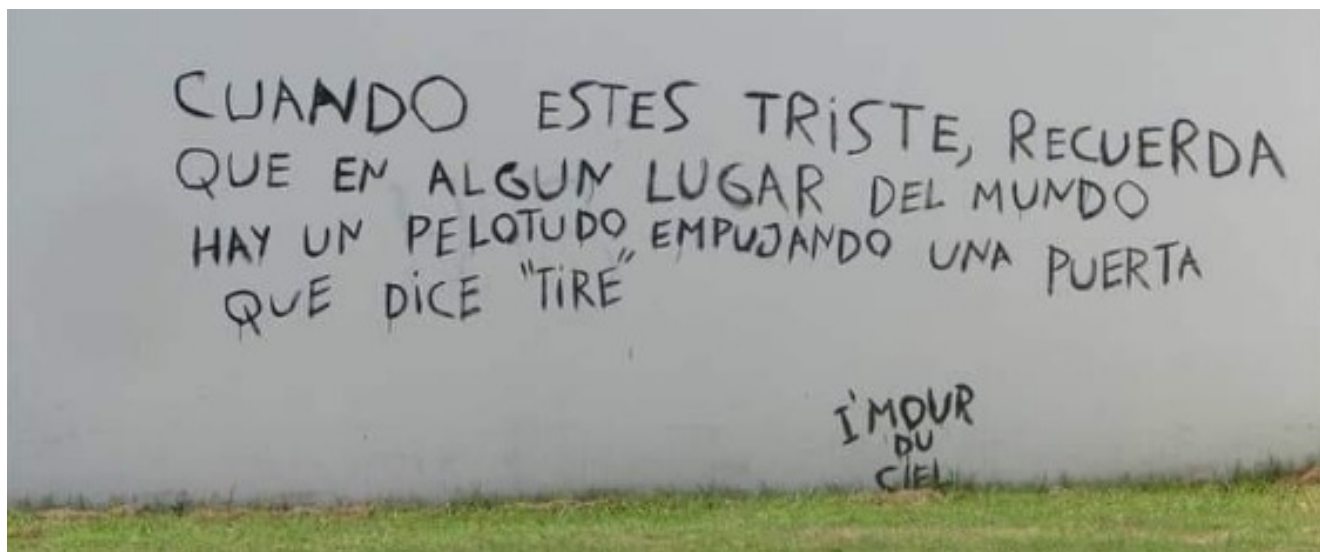 CUANDO ESTES TRiSTE, RECUERDA
QUE EN ALGUN LUGAR DEL MUNDO
HAY UN PELOTUDO EMPUJANDO UNA PUERTA
QUE DiCE "TiRE"
I'MOUR
DU
CiEL